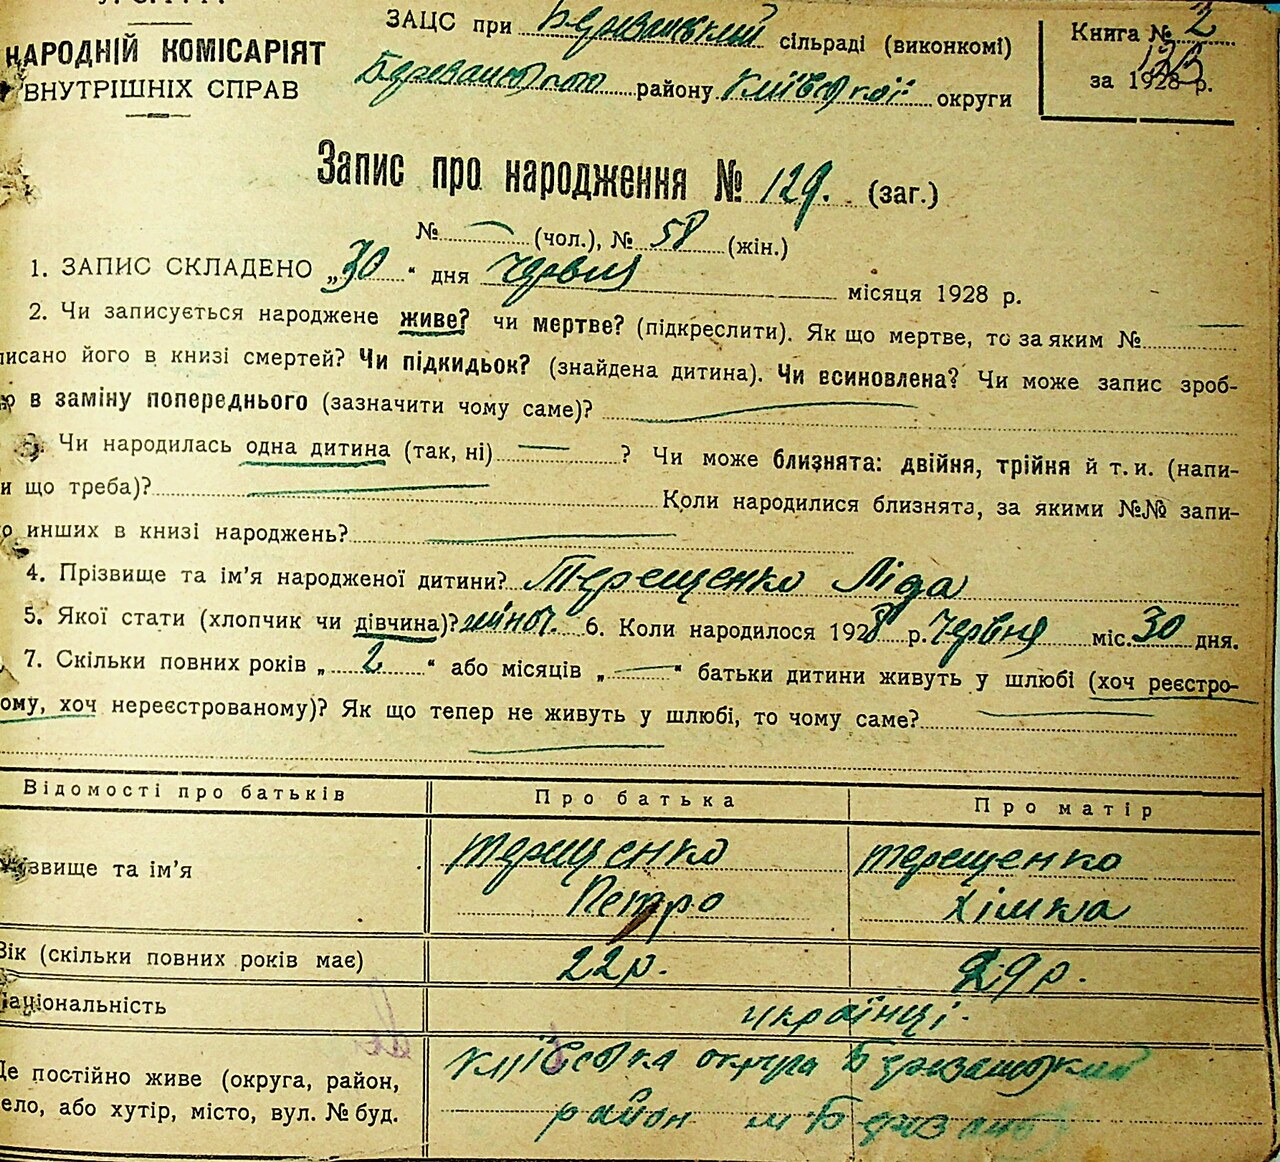 НАРОДНІЙ КОМІСАРІЯТ
ВНУТРІШНІХ СПРАВ
ЗАЦС при Березанський сільраді (виконкомі)
Березанського району Київської округи
Книга № 2
за 1928 р.
Запис про народження № 129. (заг.)
№ — (чол.), № 58 (жін.)
1. ЗАПИС СКЛАДЕНО „30“ дня червня місяця 1928 р.
2. Чи записується народжене живе? чи мертве? (підкреслити). Як що мертве, то за яким №
писано його в книзі смертей? Чи підкидьок? (знайдена дитина). Чи всиновлена? Чи може запис зроб-
в заміну попереднього (зазначити чому саме)?
3. Чи народилась одна дитина (так, ні) — ? Чи може близнята: двійня, трійня й т. и. (напи-
и що треба)? Коли народилися близнята, за якими №№ запи-
о инших в книзі народжень?
4. Прізвище та ім'я народженої дитини? Терещенко Ліда
5. Якої стати (хлопчик чи дівчина)? жіноч. 6. Коли народилося 1928 р. Червня міс. 30 дня.
7. Скільки повних років „2“ або місяців „—“ батьки дитини живуть у шлюбі (хоч реєстро-
ому, хоч нереєстрованому)? Як що тепер не живуть у шлюбі, то чому саме?
Відомості про батьків Про батька Про матір
звище та ім'я Терещенко Петро Терещенко Хімка
Вік (скільки повних років має) 22р. 29р.
Національність українці.
Де постійно живе (округа, район, Київська округа Березанський
ело, або хутір, місто, вул. № буд. район м Березань